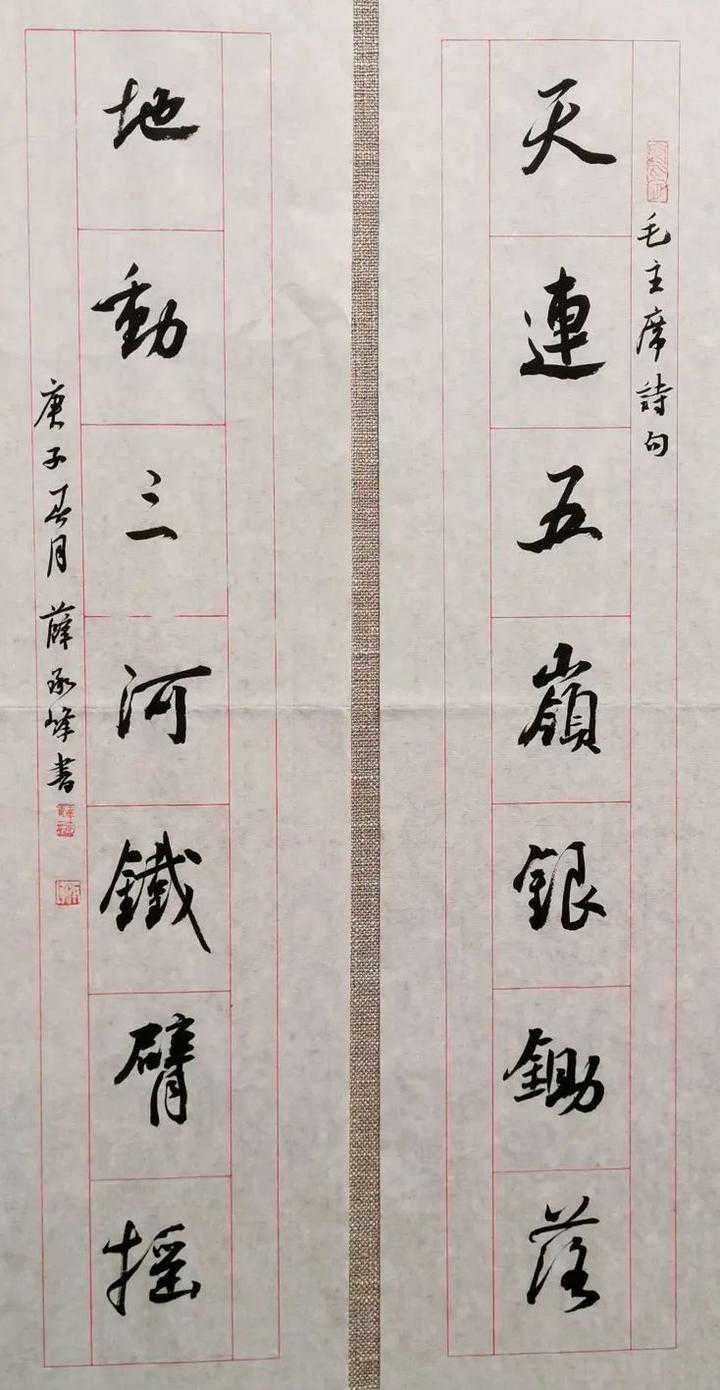 毛主席詩句
天連五嶺銀鋤落
地動三河鐵臂摇
庚子春月薛承峰書